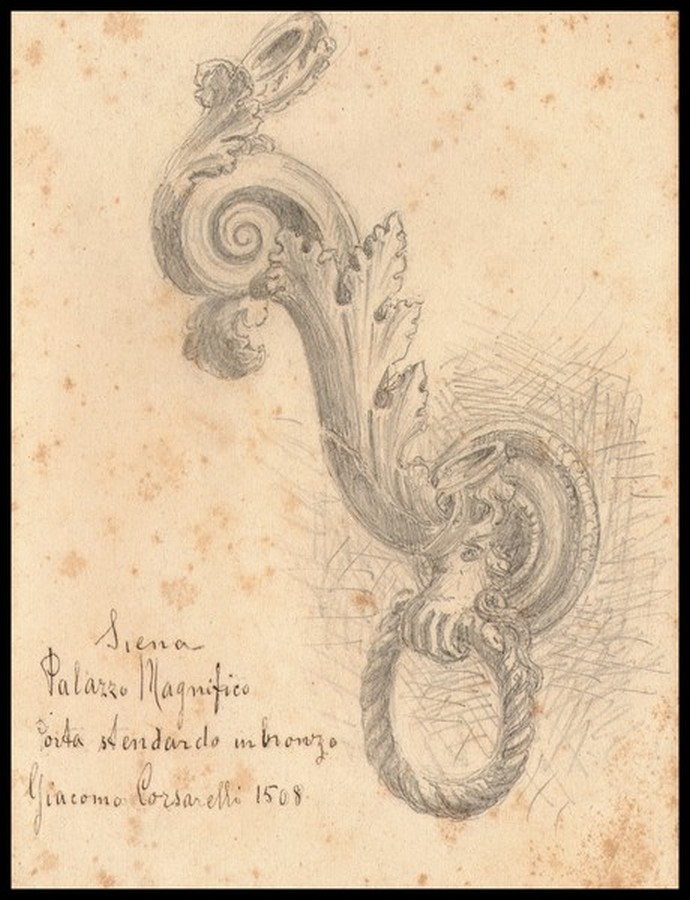 Siena
Palazzo Magnifico
Porta stendardo in bronzo
Giacomo Corsarelli 1508